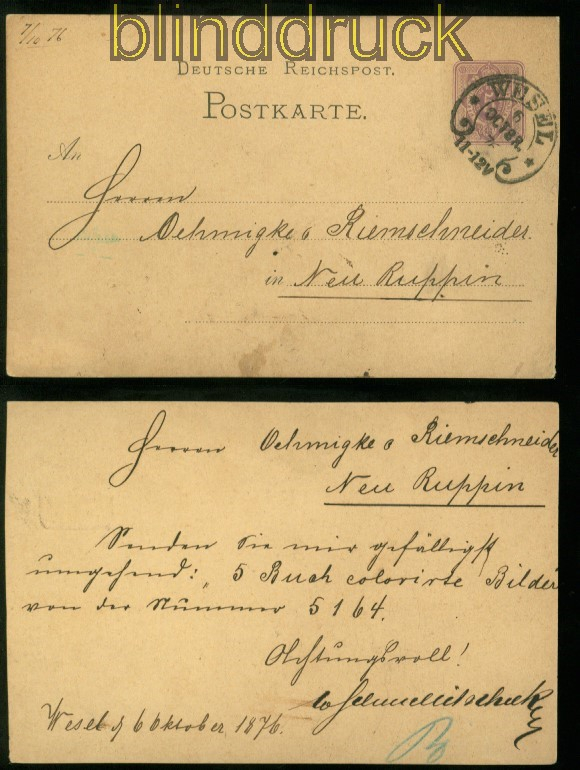 blinddruck
7/10 76
DEUTSCHE REICHSPOST.
POSTKARTE.
WESEL
6
OCTBR.
11-12V
An
Herren
Oehmigke & Riemschneider
in Neu Ruppin
Herren Oehmigke & Riemschneider
Neu Ruppin
Senden Sie mir gefälligst
umgehend: 5 Buch colorirte Bilder
von der Nummer 5164.
Achtungsvoll!
Wesel d 6 Oktober 1876.